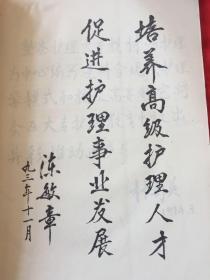 培养高级护理人才
促进护理事业发展
陈敏章
九三年十一月